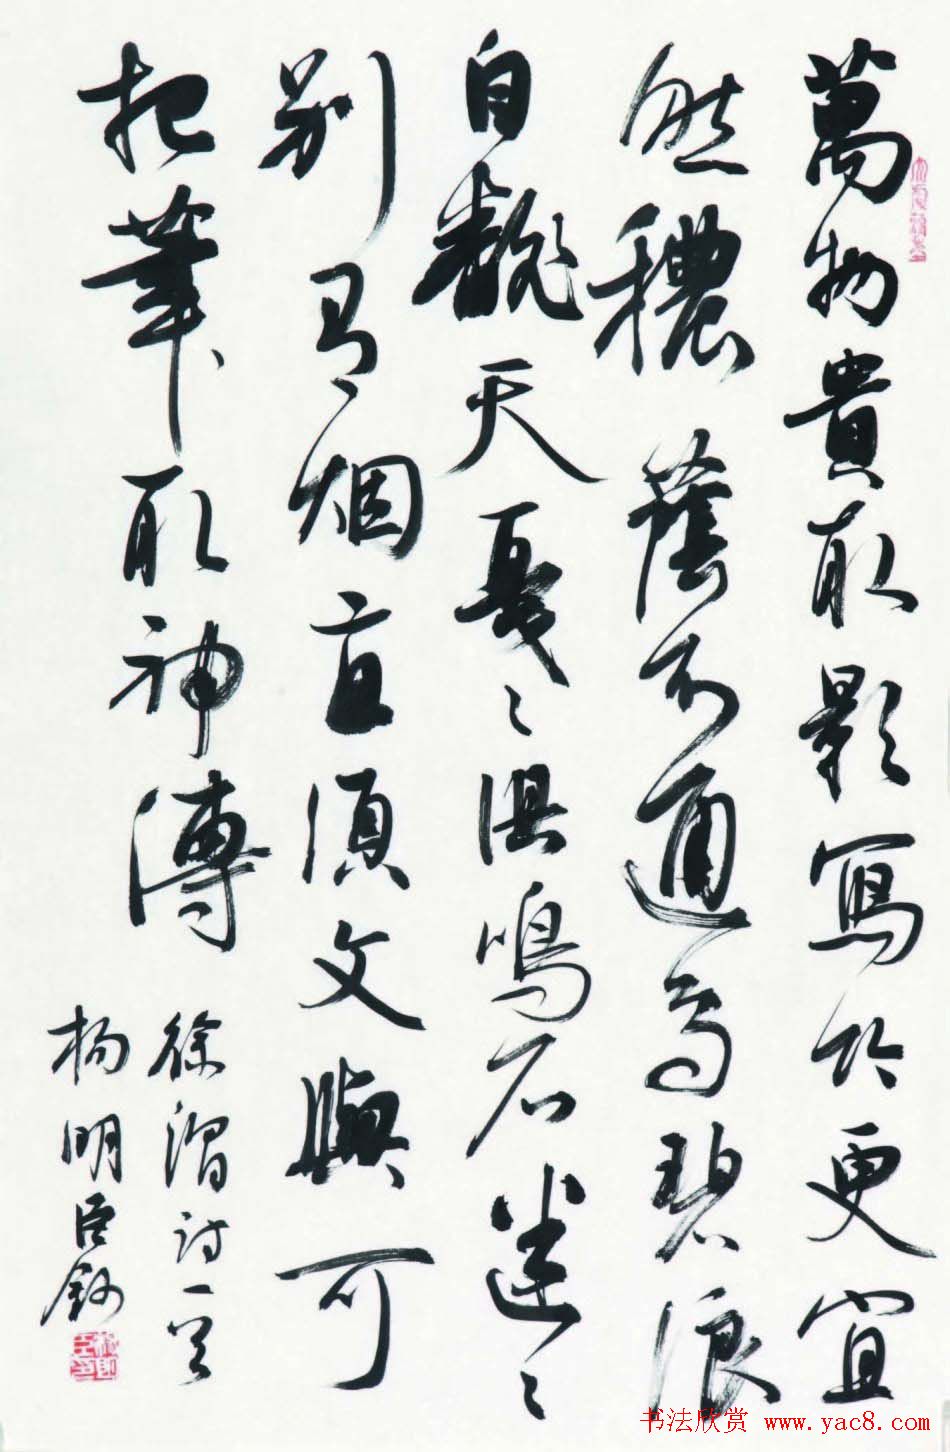 萬物貴取影寫竹更宜
然穠蔭不通鳥碧浪
自翻天戛〻俱鳴石迷〻
別有烟直須文與可
把筆取神傳
徐渭詩一首
楊明臣鈔
书法欣赏 www.yac8.com